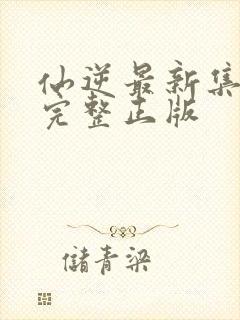 仙逆最新集
完整正版
儲青梁